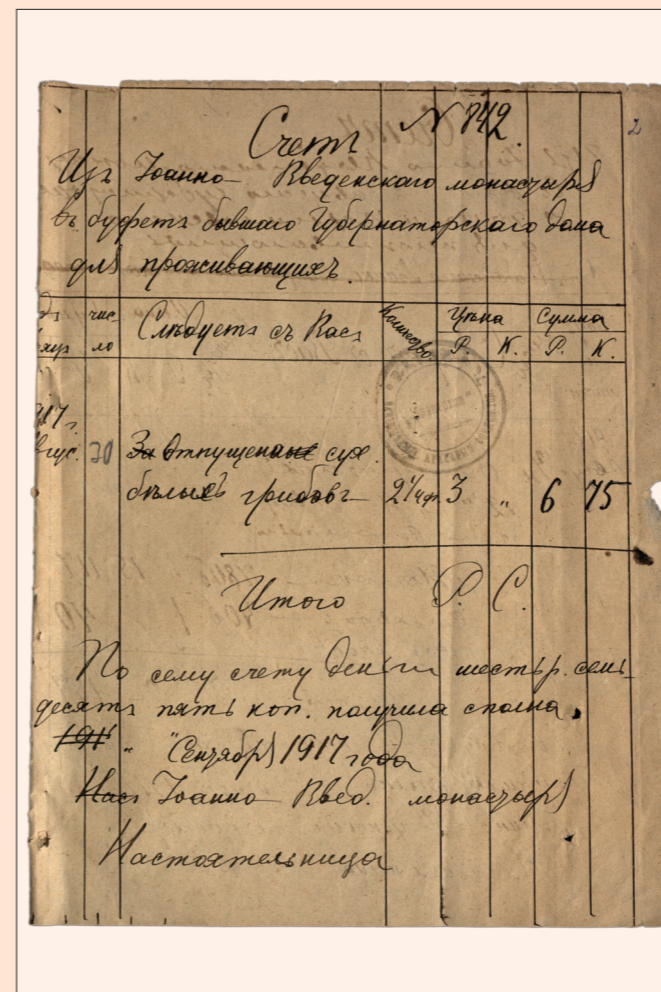 Счетъ № 842. 2
Изъ Іоанно-Введенскаго монастыря
въ буфетъ бывшаго Губернаторскаго дома
для проживающихъ.
чис- Слѣдуетъ съ Вас Количество Цѣна Сумма
ло Р. К. Р. К.
917 г.
30 За отпущенные сух.
бѣлыхъ грибовъ 2 1/4 ф. 3 " 6 75
Итого Р. С.
По сему счету деньги шесть р. семь-
десятъ пять коп. получила сполна.
191 " " Сентября 1917 года
Нас Іоанно-Введ. монастыря
Настоятельница